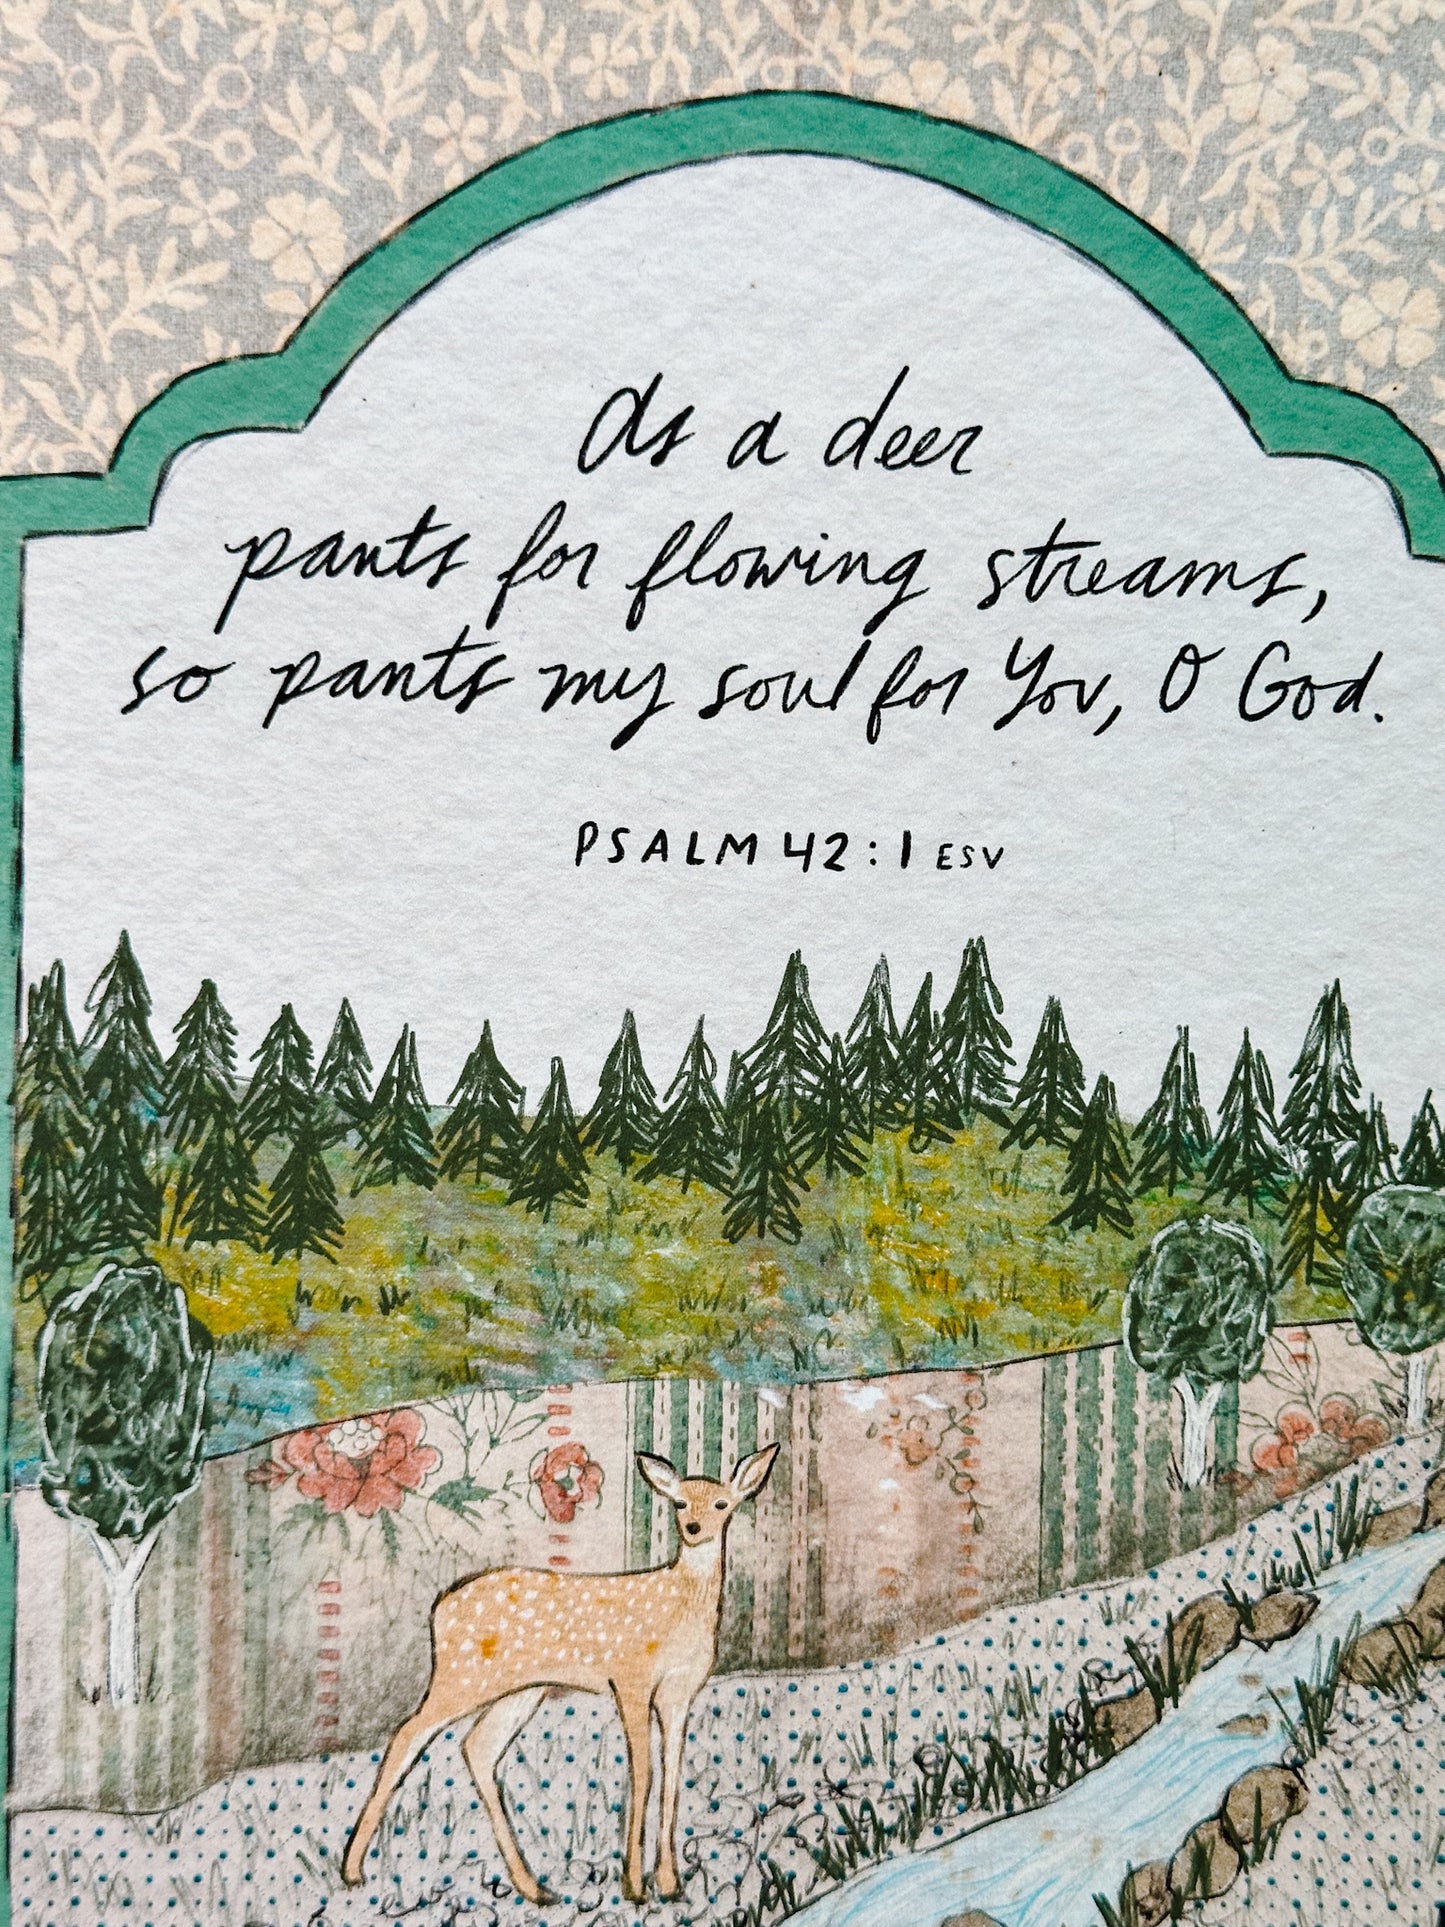 As a deer
pants for flowing streams,
so pants my soul for You, O God.
PSALM 42:1 ESV